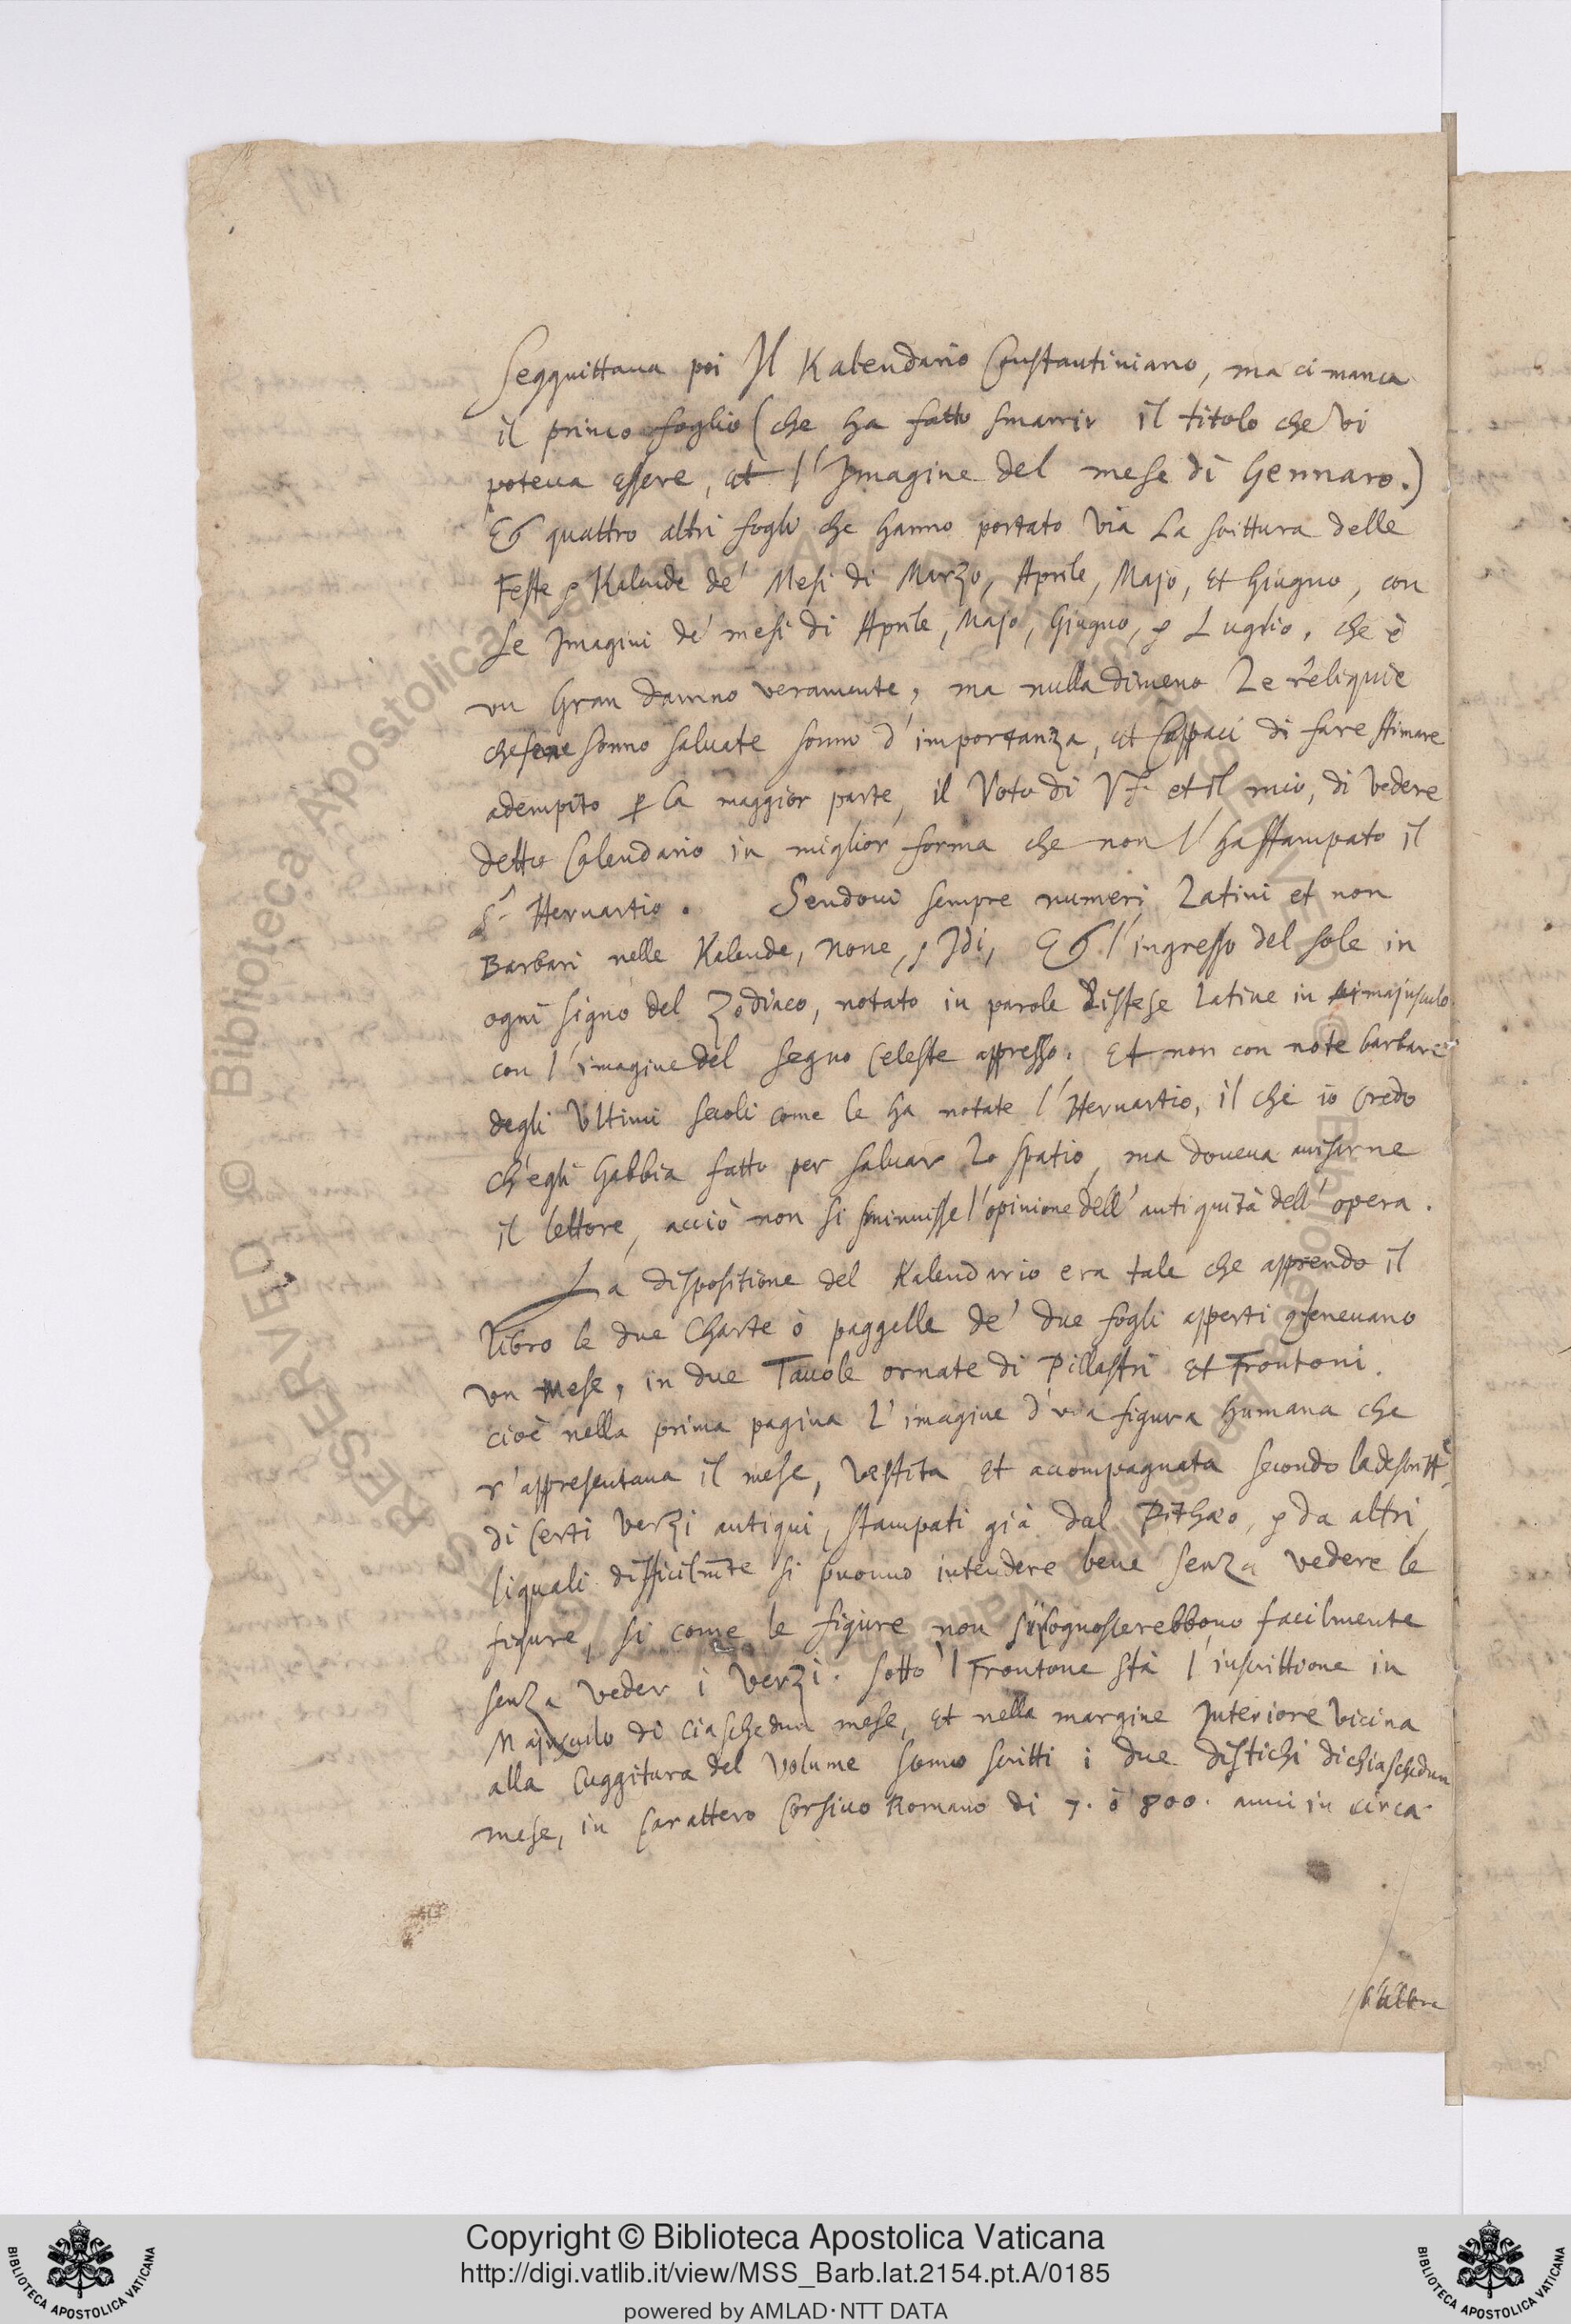 Segguittaua poi Il Kalendario Constantiniano, ma ci manca
il primo foglio (che ha fatto smarrir il titolo che vi
poteua essere, et l'Imagine del mese di Gennaro.)
Et quattro altri fogli che hanno portato via La scrittura delle
Feste e Kalende de' Mesi di Marzo, Aprile, Majo, et Giugno, con
Le Imagini de' mesi di Aprile, Majo, Giugno, e Luglio, che è
un Gran danno veramente, ma nulladimeno Le reliquie
che sene sonno saluate sonno d'importanza, et Cappaci di fare stimare
adempito p la maggior parte, il Voto di VS. et il mio, di vedere
detto Calendario in miglior forma che non l'ha stampato il
Sr. Heruartio. Sendoui sempre numeri Latini et non
Barbari nelle Kalende, None, e Idi, Et l'ingresso del sole in
ogni signo del Zodiaco, notato in parole distese latine in majusculo
con l'imagine del segno Celeste appresso. Et non con note barbare
degli Vltimi secoli come le ha notate l'Heruartio, il che io credo
ch'egli habbia fatto per saluar Lo spatio, ma doueua auisarne
il lettore, acciò non si sminuisse l'opinione dell'antiquità dell'opera.
La dispositione del Kalendario era tale che apprendo il
libro le due Charte ò paggelle de' due fogli apperti 9teneuano
vn mese, in due Tauole ornate di Pillastri et Frontoni.
cioè nella prima pagina l'imagine d'vna figura humana che
r'appresentaua il mese, vestita et accompagnata secondo la descritte
di Certi verzi antiqui, stampati già dal Pithæo, e da altri,
liquali difficilmte si puonno intendere bene senza vedere le
figure, si come le figure non si ricognoscerebbono facilmente
senza veder i verzi. Sotto 'l Frontone stà l'inscrittione in
Majusculo di ciaschedun mese, et nella margine Interiore vicina
alla Cuggitura del Volume sonno scritti i due distichi di chiaschedun
mese, in Carattero Corsiuo Romano di 7. ò 800. anni in circa
l'altra
Copyright © Biblioteca Apostolica Vaticana
http://digi.vatlib.it/view/MSS_Barb.lat.2154.pt.A/0185
powered by AMLAD·NTT DATA
BIBLIOTECA APOSTOLICA VATICANA
BIBLIOTECA APOSTOLICA VATICANA